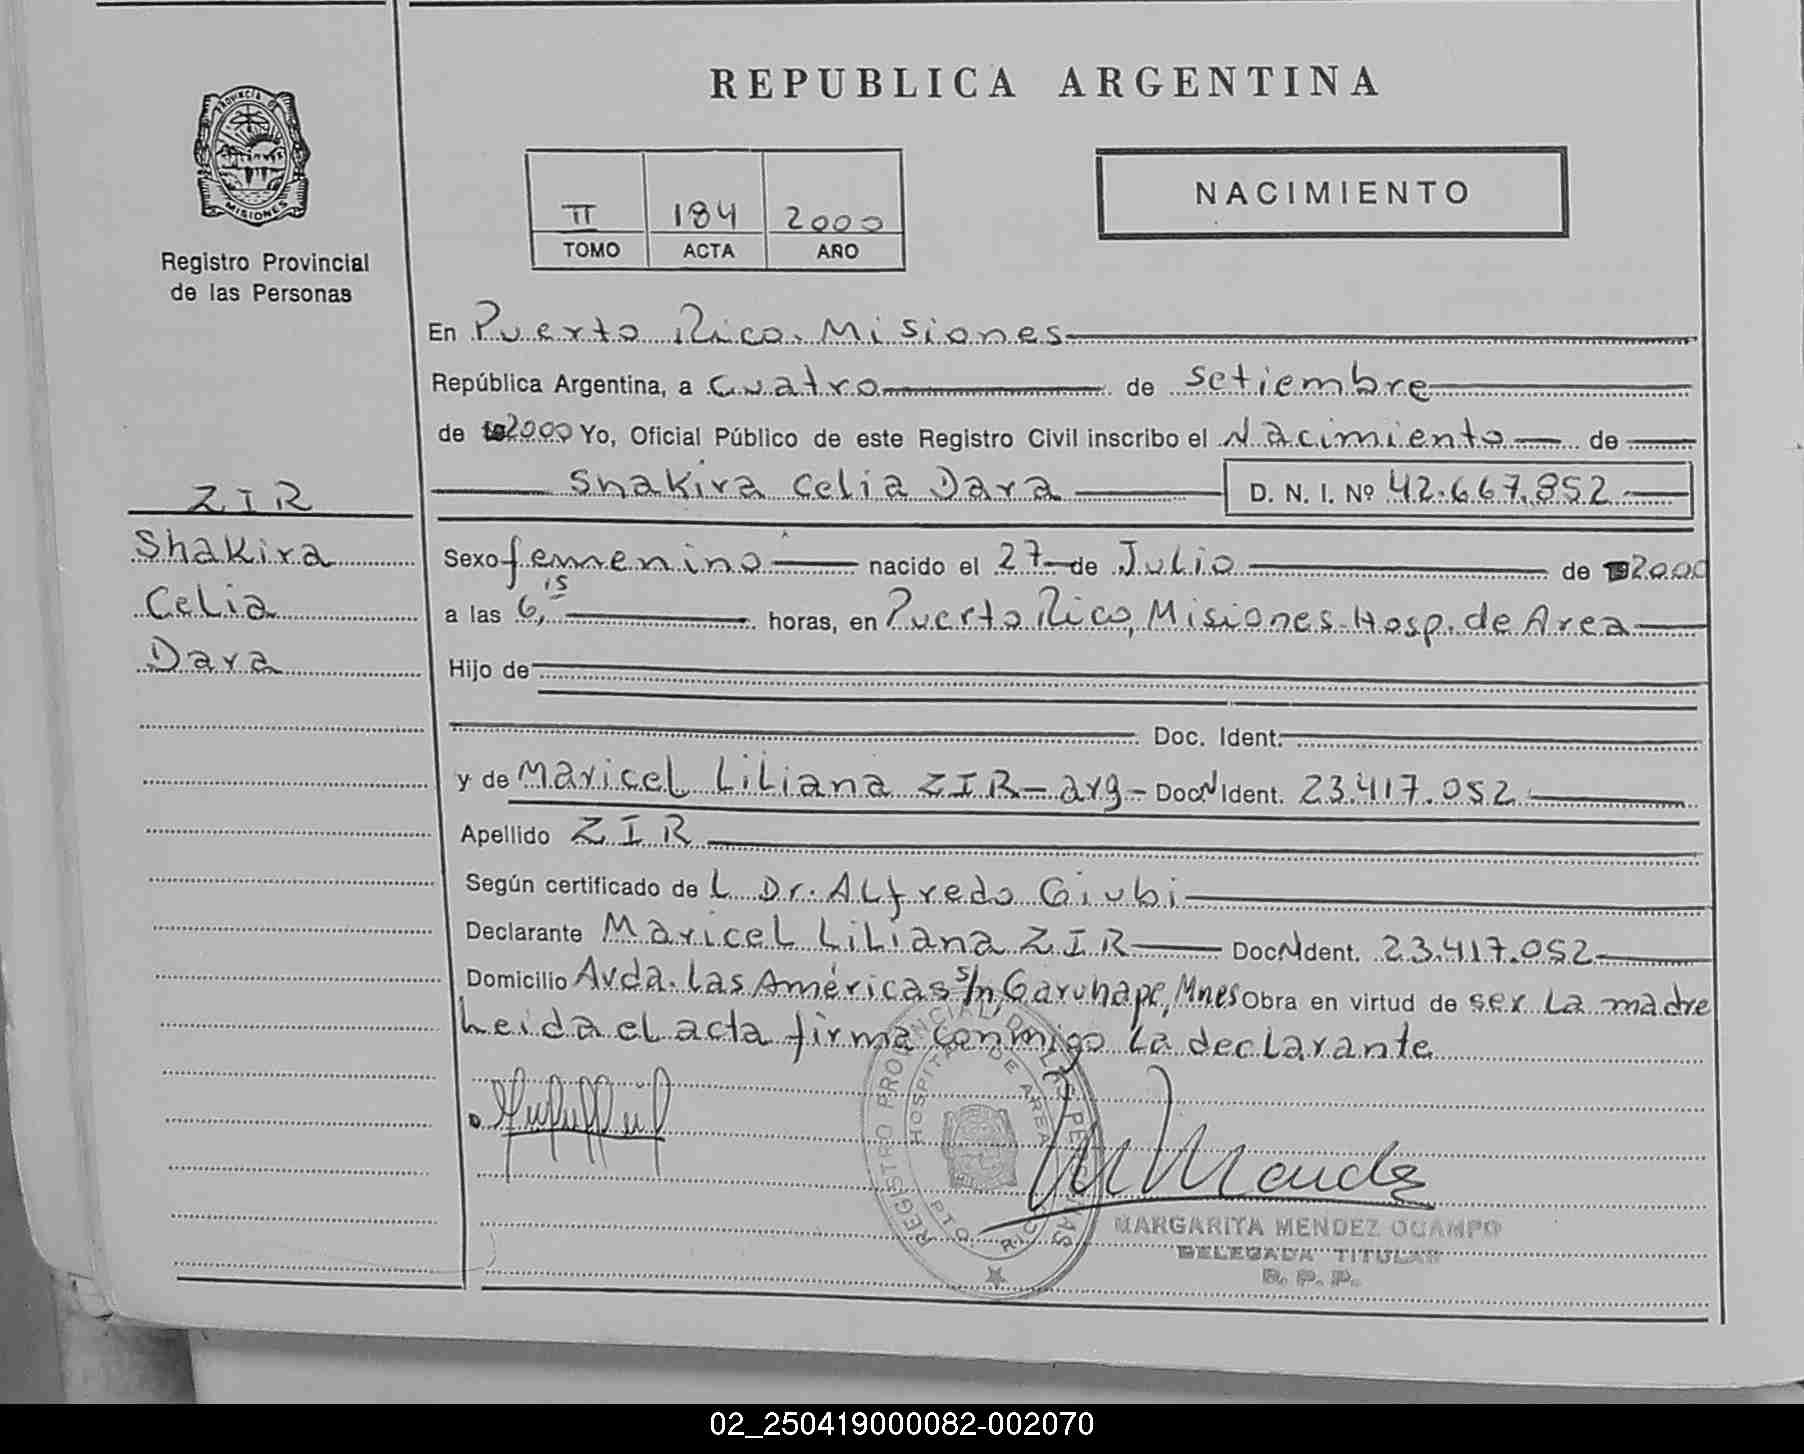 REPUBLICA ARGENTINA
PROVINCIA DE
MISIONES
Registro Provincial
de las Personas
II 184 2000
TOMO ACTA AÑO
NACIMIENTO
En Puerto Rico, Misiones
República Argentina, a cuatro de setiembre
de 2000 Yo, Oficial Público de este Registro Civil inscribo el Nacimiento de
Shakira Celia Dara D. N. I. Nº 42.667.852
ZIR
Shakira
Celia
Dara
Sexo femenino nacido el 27 de Julio de 2000
a las 6,15 horas, en Puerto Rico, Misiones-Hosp. de Area
Hijo de
Doc. Ident.
y de Maricel Liliana ZIR-arg- Doc.N Ident. 23.417.052
Apellido ZIR
Según certificado de L Dr. Alfredo Giubi
Declarante Maricel Liliana ZIR Doc.N Ident. 23.417.052
Domicilio Avda. Las Américas s/n Garuhapé, Mnes Obra en virtud de ser la madre
Leida el acta firma conmigo la declarante
REGISTRO PROVINCIAL DE LAS PERSONAS
HOSPITAL DE AREA
PTO. RICO
MARGARITA MENDEZ OCAMPO
DELEGADA TITULAR
R. P. P.
02_250419000082-002070